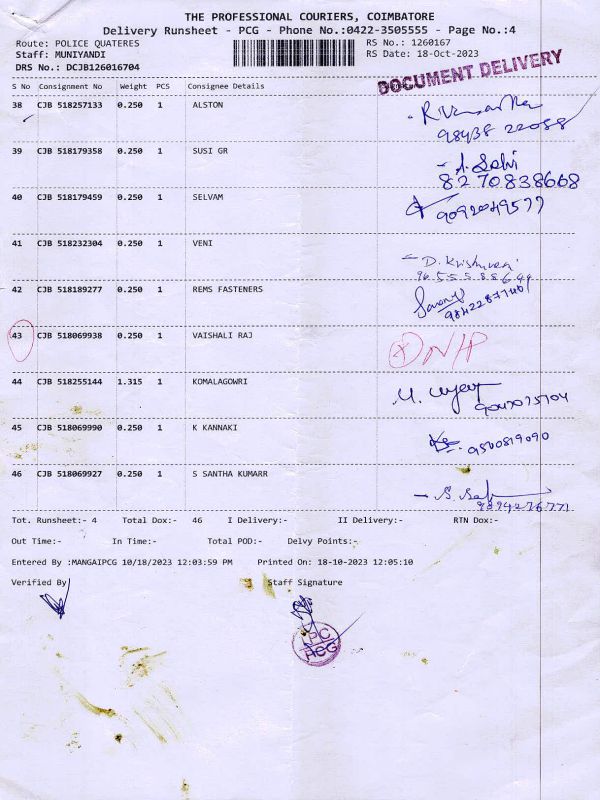 THE PROFESSIONAL COURIERS, COIMBATORE
Delivery Runsheet - PCG - Phone No.:0422-3505555 - Page No.:4
Route: POLICE QUATERES RS No.: 1260167
Staff: MUNIYANDI RS Date: 18-Oct-2023
DRS No.: DCJB126016704
DOCUMENT DELIVERY
S No Consignment No Weight PCS Consignee Details
38 CJB 518257133 0.250 1 ALSTON
98438 22088
39 CJB 518179358 0.250 1 SUSI GR
8270838668
40 CJB 518179459 0.250 1 SELVAM
9092049577
41 CJB 518232304 0.250 1 VENI
42 CJB 518189277 0.250 1 REMS FASTENERS
43 CJB 518069938 0.250 1 VAISHALI RAJ
44 CJB 518255144 1.315 1 KOMALAGOWRI
45 CJB 518069990 0.250 1 K KANNAKI
9500819090
46 CJB 518069927 0.250 1 S SANTHA KUMARR
9894276771
Tot. Runsheet:- 4 Total Dox:- 46 I Delivery:- II Delivery:- RTN Dox:-
Out Time:- In Time:- Total POD:- Delvy Points:-
Entered By :MANGAIPCG 10/18/2023 12:03:59 PM Printed On: 18-10-2023 12:05:10
Verified By Staff Signature